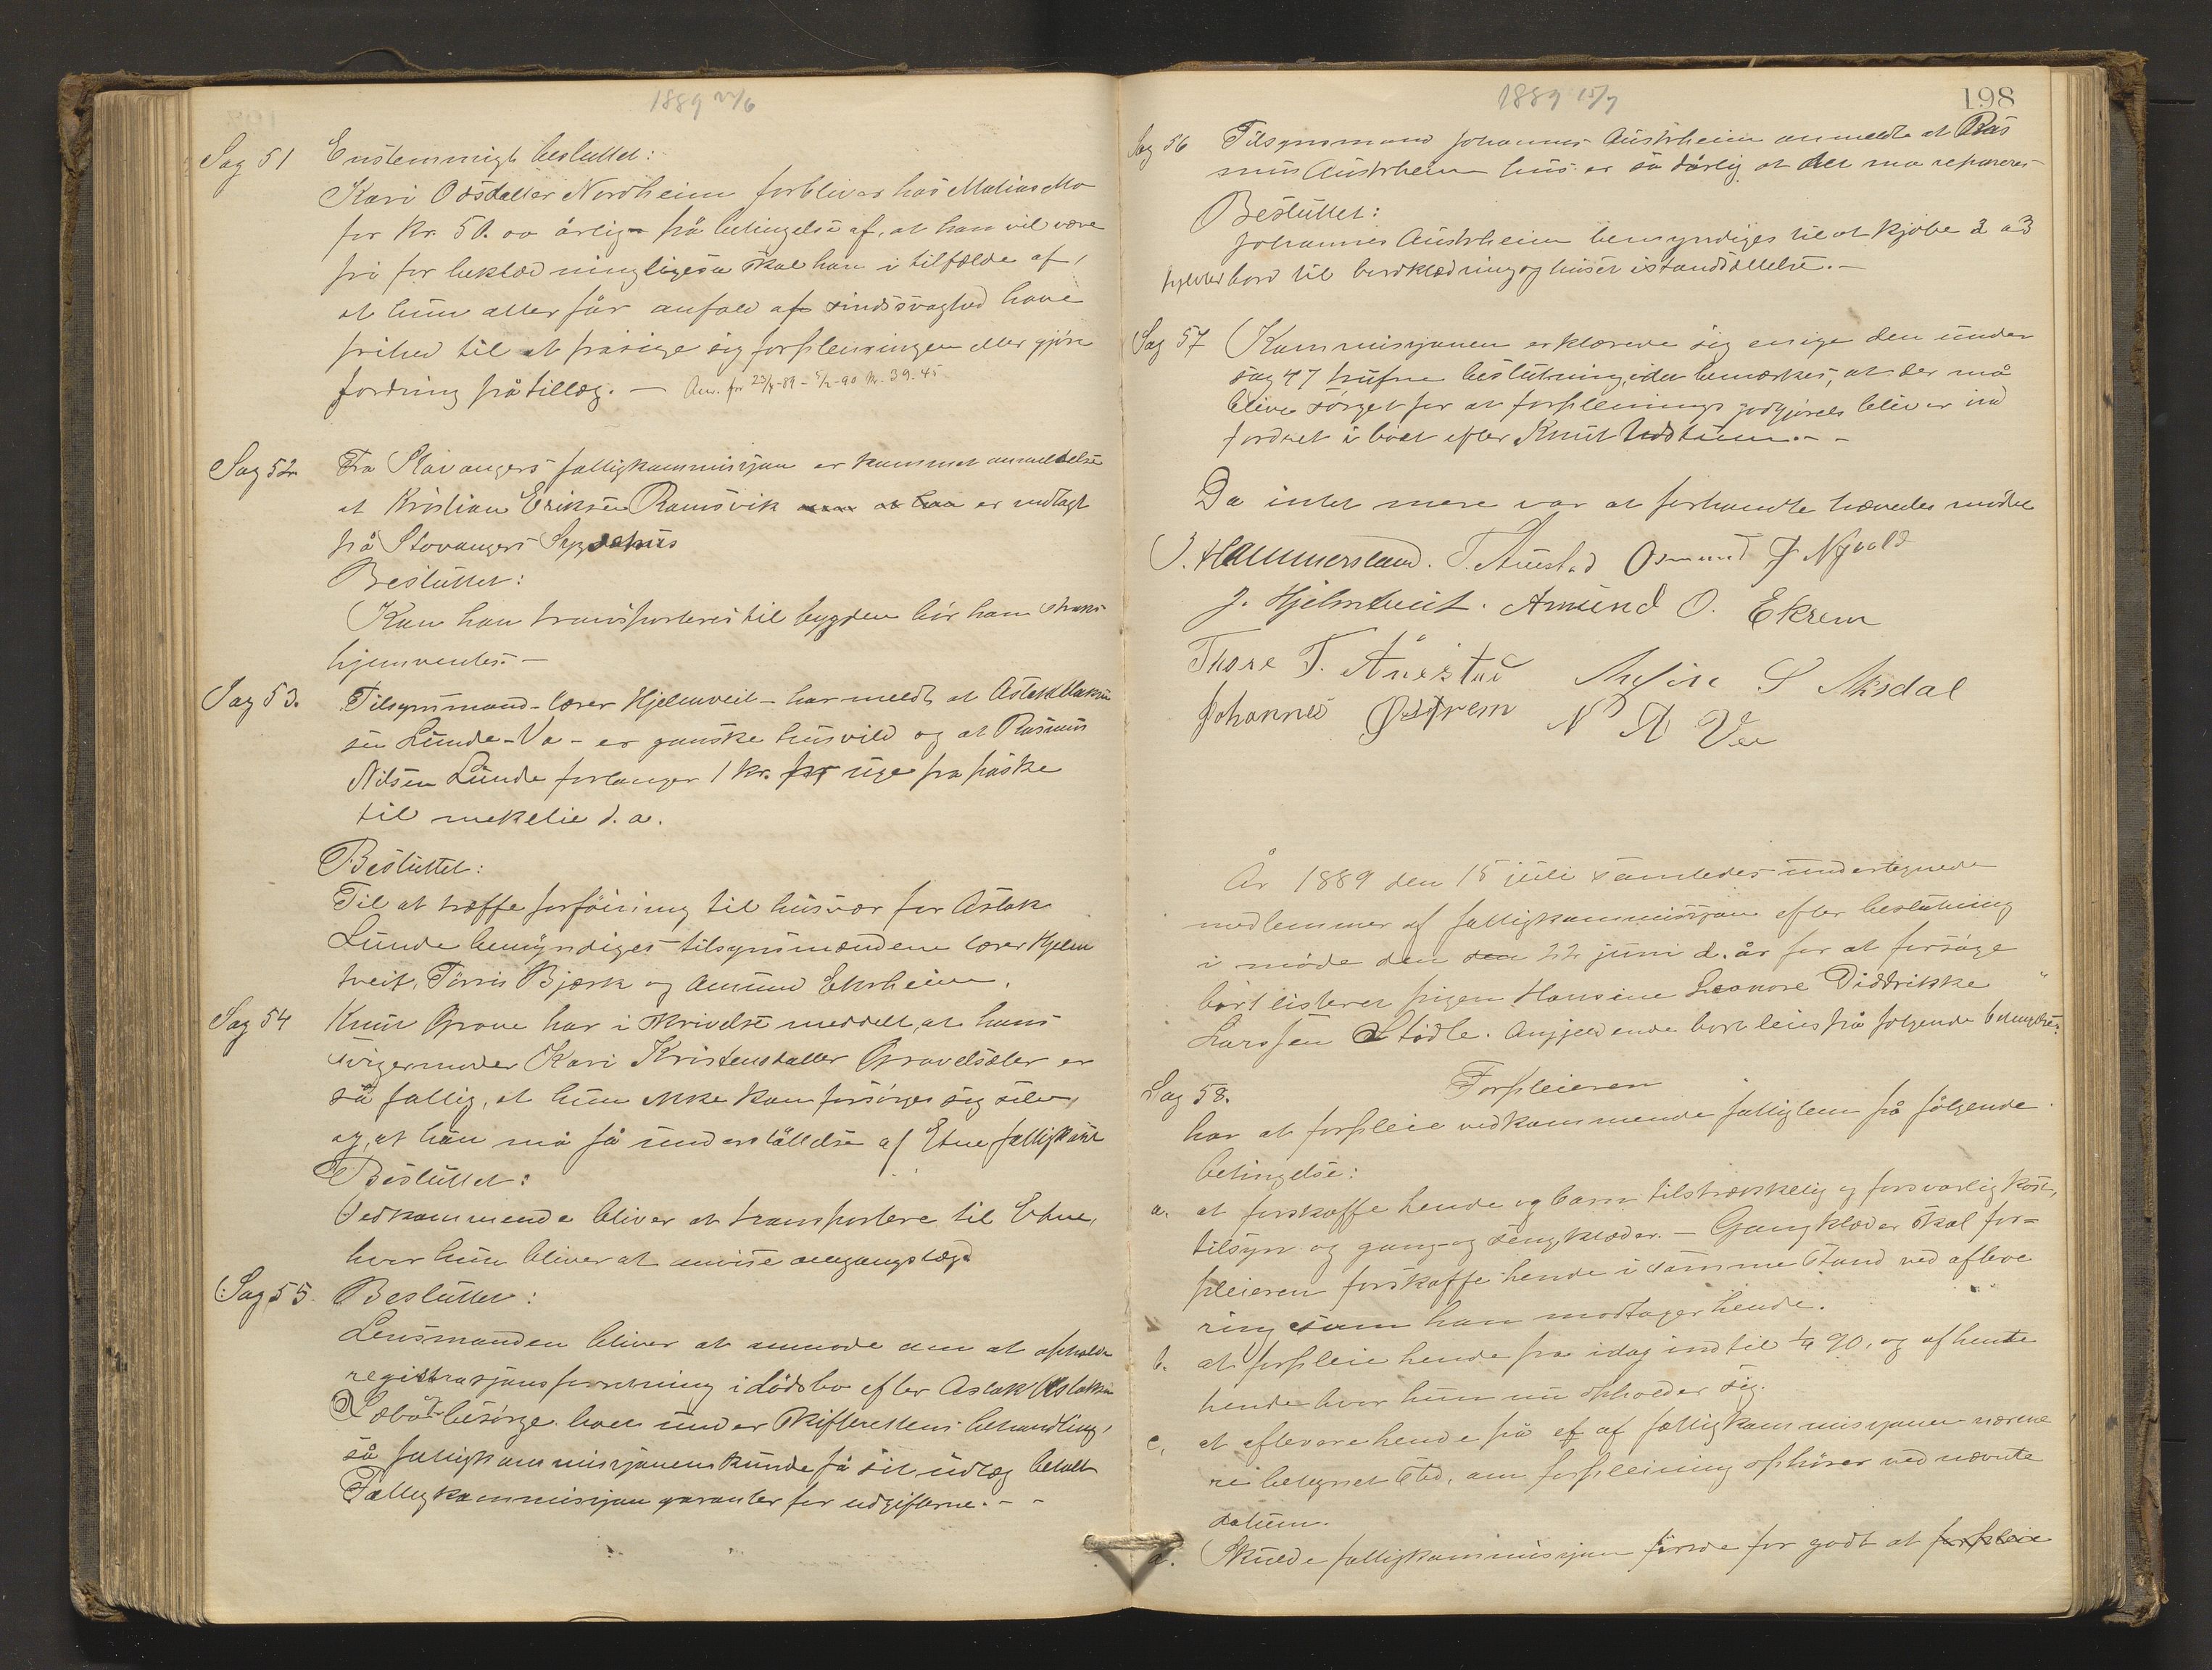 1889 22/6
Sag 51 Enstemmigt besluttet:
Kari Osdatter Nordheim forblives hos Matias Mo
for kr. 50.00 årlig på betingelse af, at han vil være
fri for beklædning ligesa skal han i tilfælde af,
at hun atter får anfald af sindssvaghed have
frihed til at frasige sig forpleiningen eller gjøre
fordring på tillæg. —
Sag 52 Fra Stavangers fattigkommisjon er kommet anmeldelse
at Kristian Eriksen Ramsvik er indlagt
på Stavangers Sygehus
Besluttet:
Kan han transporteres til bygden bör han straks
hjemsendes. —
Sag 53. Tilsynsmand - lærer Hjelmveit - har meldt at Aslak Aslak
sen Lunde - Va - er ganske husvild og at Rasmus
Nilsen Lunde forlanger 1 kr. for uge fra påske
til mekelie d.a.
Besluttet:
Til at træffe forføining til husvær for Aslak
Lunde bemyndiges tilsynsmændene lærer Hjelm
tveit, Tørris Bjørk og Amund Ekrheim.
Sag 54 Knut Grove har i skrivelse meddelt, at hans
svigermoder Kari Kristensdatter Gravelsæter er
så fattig, at hun ikke kan forsørge sig selv,
og, at hun må få understøttelse af Etne fattigkasse
Besluttet:
Vedkommende bliver at transportere til Etne,
hvor hun bliver at anvise omgangslægd
Sag 55. Besluttet:
Lensmanden bliver at anmode om at afholde
registrasjonsforretning i dødsbo efter Aslak Aslaksen
Sæbø, besørge boet under skifterettens behandling,
så fattigkommisjonen kunde få sit udlæg betalt
Fattigkommisjon garanter for udgifterne. - -
1889 15/7
198
Sag 56 Tilsynsmand Johannes Austrheim anmeldte at Ras
mus Austrheim hus er så dårlig at det må repareres
Besluttet:
Johannes Austrheim bemyndiges til at kjøbe 2 a 3
tylvter bord til bordklædning og huset istandsættelse. —
Sag 57 Kommisjonen erklærede sig enige den under
sag 47 trufne beslutning, idet bemærkes, at der må
blive sörget for at forpleinings godgjørels bliver ind
fordret i boet efter Knut
Da intet mere var at forhandle hævedes mödet
J. Hammersland. T. Austad Osmund J Nyvold
J. Hjelmtveit. Amund O. Ekrem
Thore T. Åuestad S Aksdal
Johannes Østrem N A Vee
År 1889 den 15 juli samledes undertegnede
medlemmer af fattigkommisjon efter beslutning
i møde den 22 juni d. år for at forsøge
bort listerer pigen Hansine Leonore Diddrikke
Larssen Stødle. Angjeldende bortleies på følgende betingelse:
Sag 58. Forpleieren
har at forpleie vedkommende fattiglem på følgende
betingelse:
a. at forskaffe hende og barn tilstrækkelig og forsvarlig kost,
tilsyn og gang- og sengklæder. — Gangklæder skal for=
pleieren forskaffe hende i samme stand ved afleve
ring som han modtager hende.
b. at forpleie hende fra idag indtil 1/4 90, og afhente
hende hvor hun nu opholder sig.
c. at aflevere hende på et af fattigkommisjonen nærme
re betegnet sted, om forpleining ophører ved nævnte
datum.
d. Skulde fattigkommisjon finde for godt at forpleie